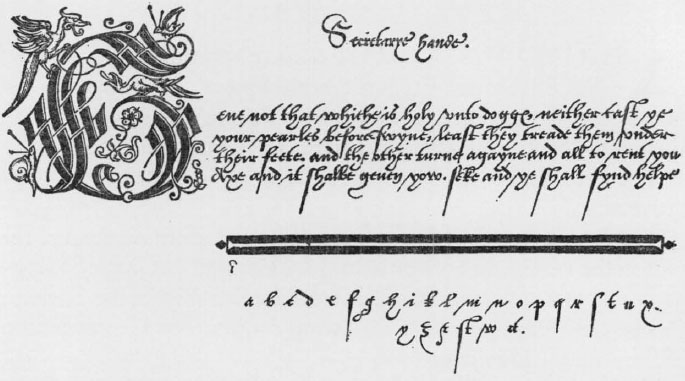 Secretarye hande.
Geue not that whiche is holy vnto dogges, neither cast ye
your pearles before swyne, least they treade them vnder
their feete. and the other turne agayne and all to rent you
Axe and it shalbe geuen yow. seke and ye shall fynd helpe
a b c d e f g h i k l m n o p q r s t u x.
y z st w